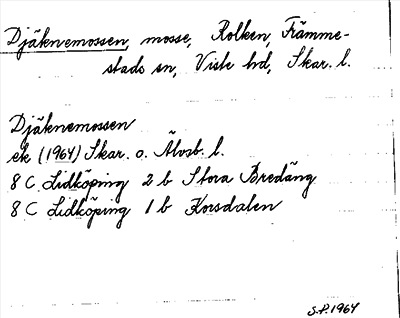 Djäknemossen, mosse, Rolken, Främme-
stads sn, Viste hd, Skar. l.
Djäknemossen
ek (1964) Skar. o. Älvsb. l.
8 C Lidköping 2 b Stora Bredäng
8 C Lidköping 1 b Korsdalen
S.P. 1964